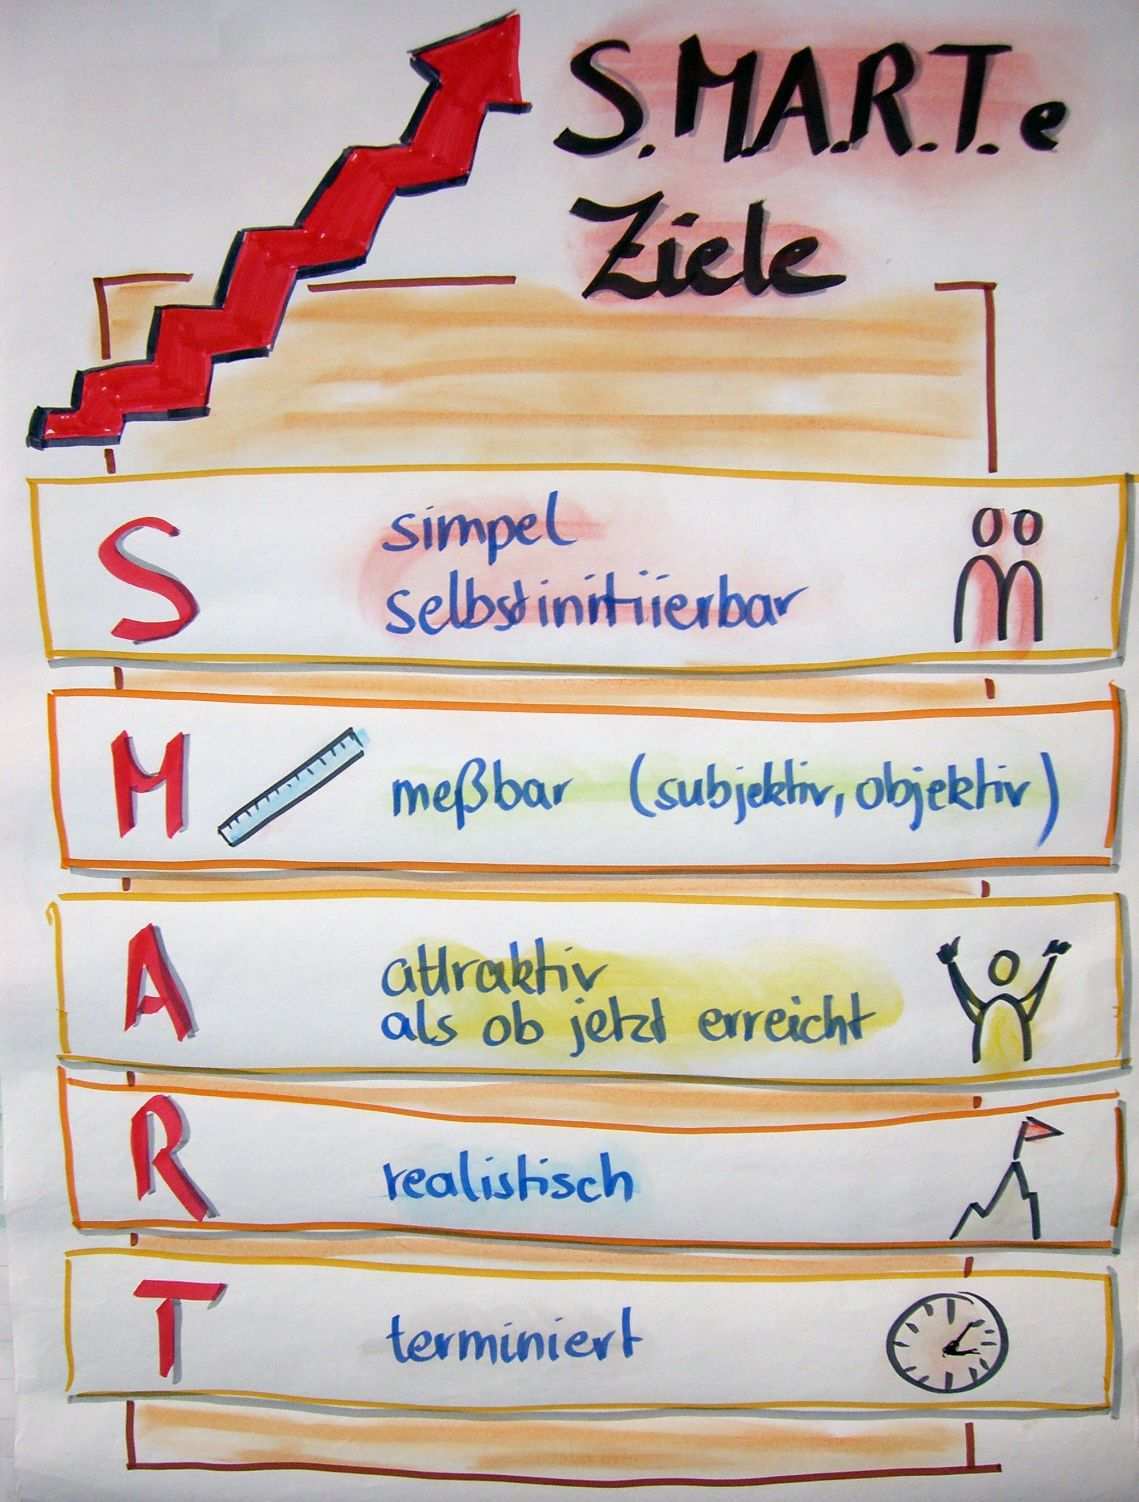 S.M.A.R.T.e
Ziele
S
simpel
selbstinitiierbar
M
meßbar (subjektiv, objektiv)
A
attraktiv
als ob jetzt erreicht
R
realistisch
T
terminiert